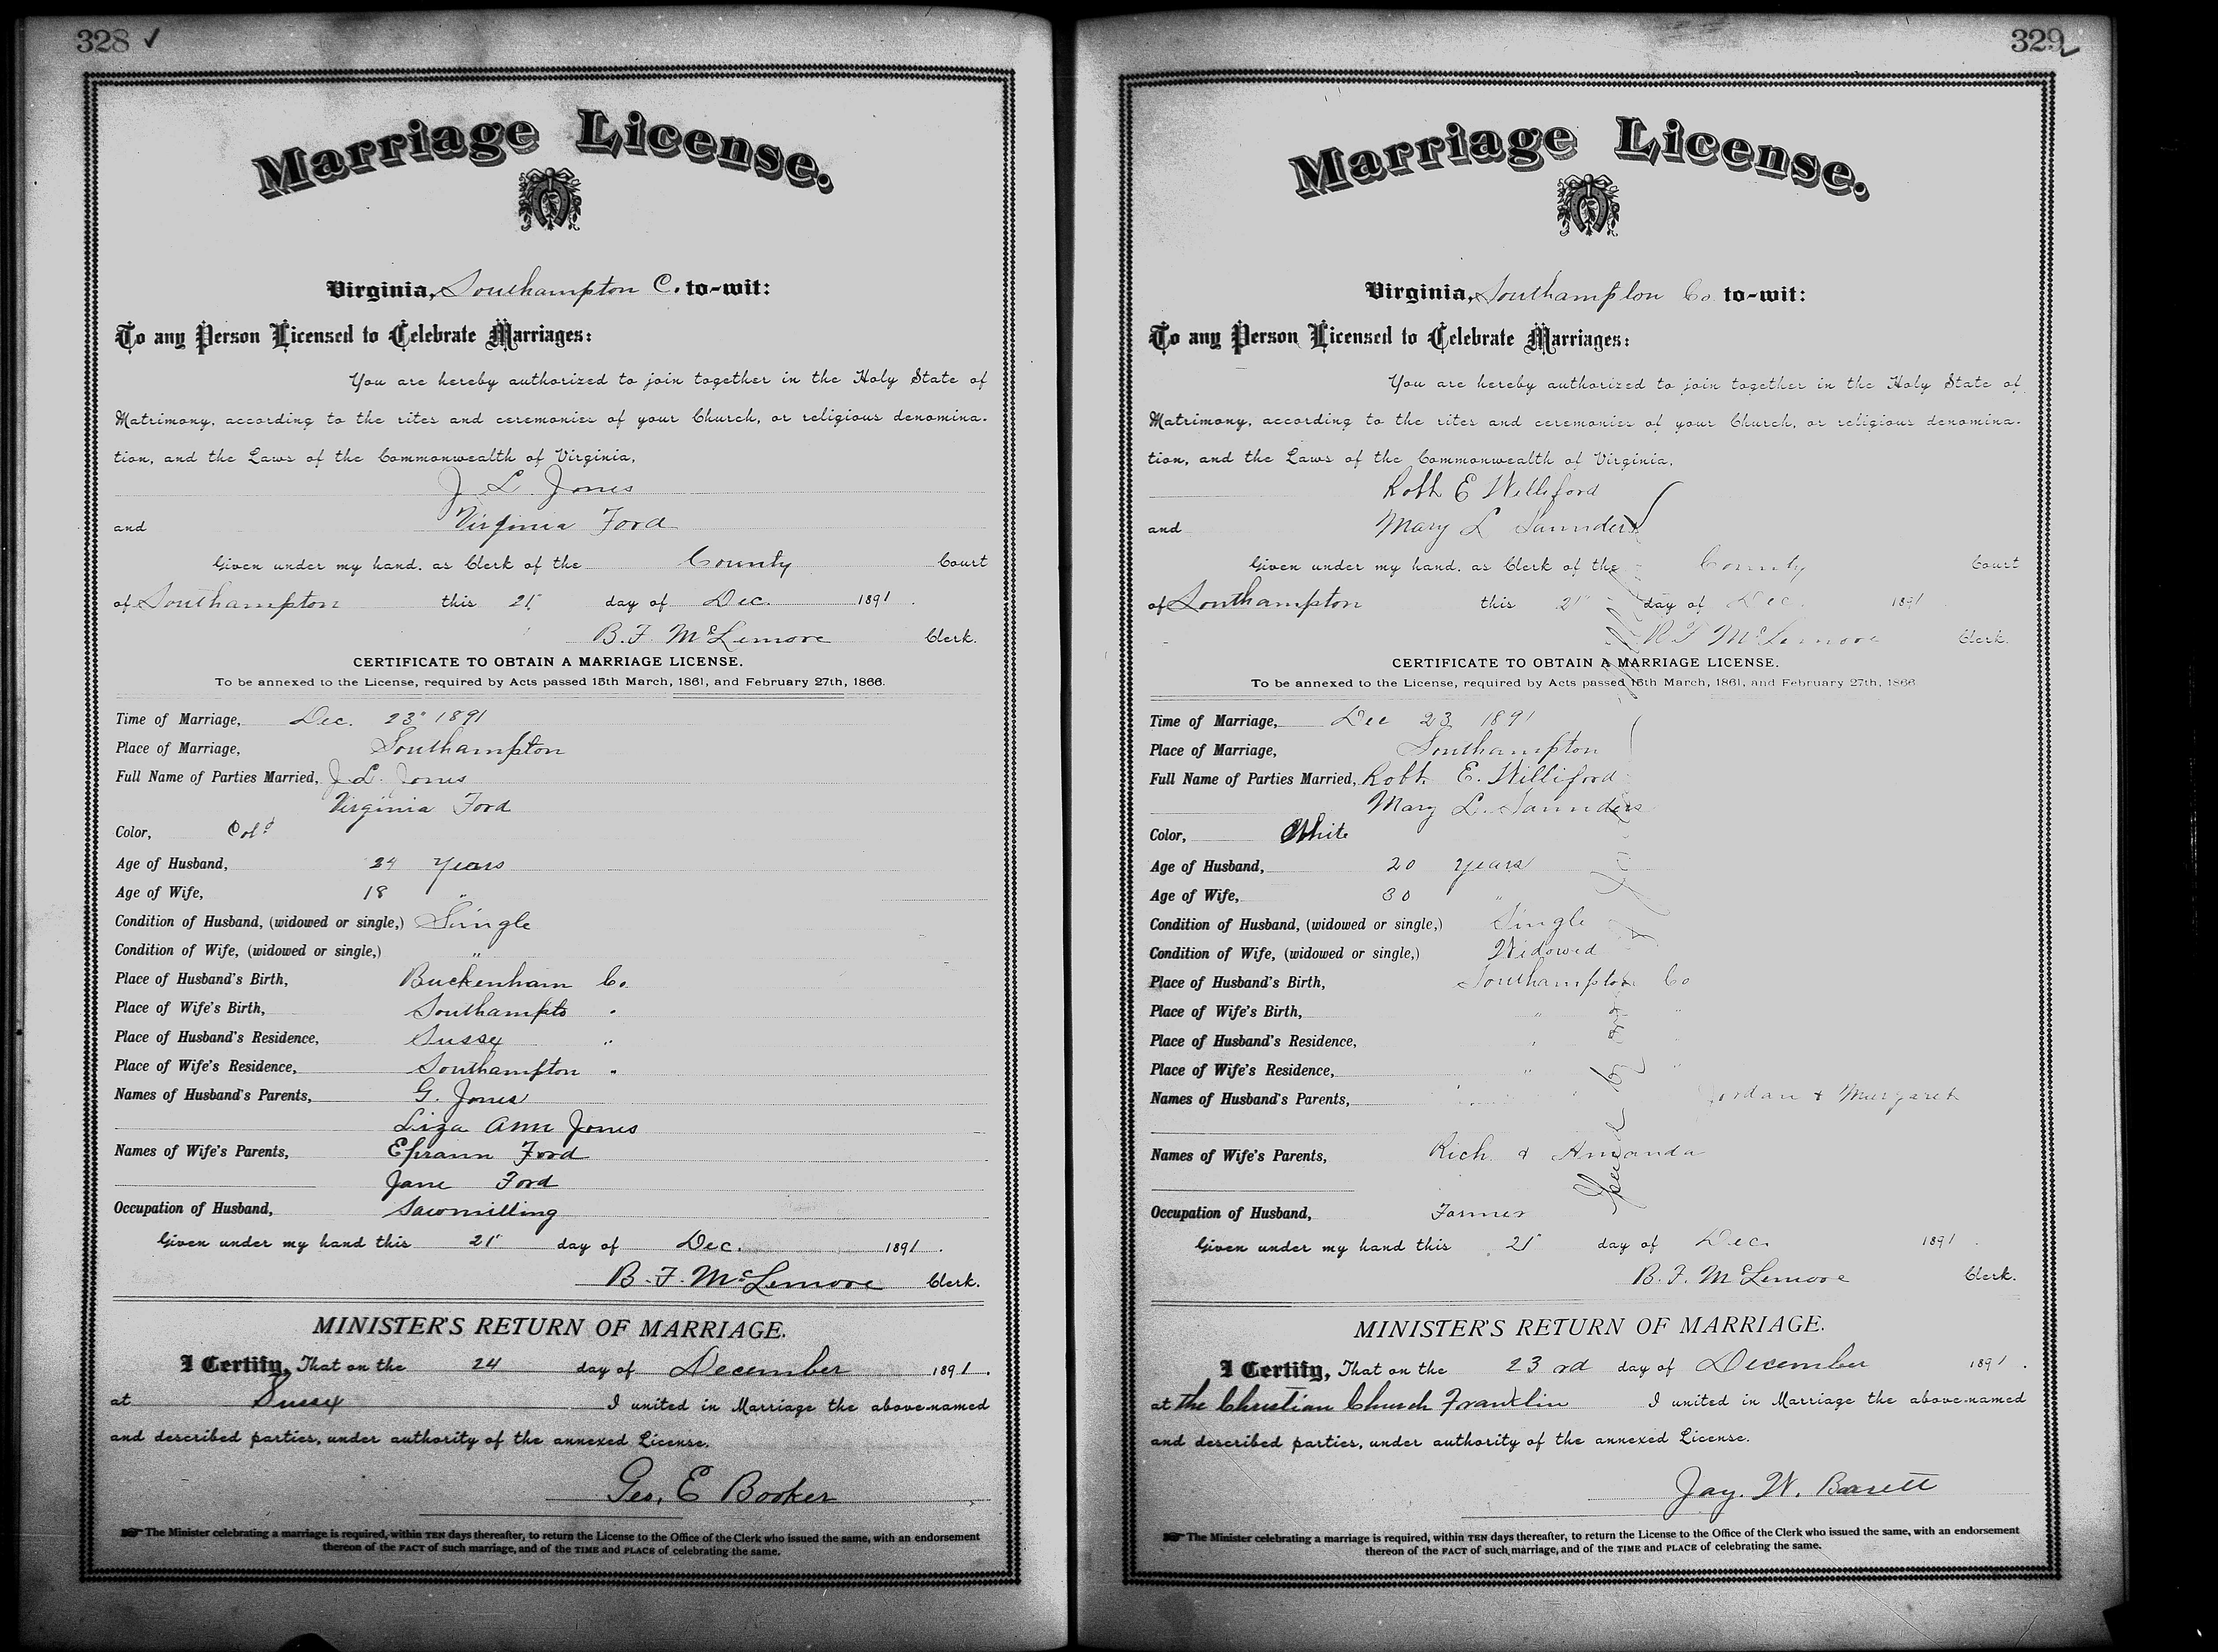 328 ✓
Marriage License.
Virginia, Southampton C. to-wit:
To any Person Licensed to Celebrate Marriages:
You are hereby authorized to join together in the Holy State of
Matrimony, according to the rites and ceremonies of your Church, or religious denomina-
tion, and the Laws of the Commonwealth of Virginia,
J L Jones
and Virginia Ford
Given under my hand, as Clerk of the County Court
of Southampton this 21" day of Dec. 1891.
B. F. McLemore Clerk.
CERTIFICATE TO OBTAIN A MARRIAGE LICENSE.
To be annexed to the License, required by Acts passed 15th March, 1861, and February 27th, 1866.
Time of Marriage, Dec. 23" 1891
Place of Marriage, Southampton
Full Name of Parties Married, J. L. Jones
Virginia Ford
Color, Cold
Age of Husband, 24 Years
Age of Wife, 18 "
Condition of Husband, (widowed or single,) Single
Condition of Wife, (widowed or single,) "
Place of Husband's Birth, Buckenham Co.
Place of Wife's Birth, Southampto "
Place of Husband's Residence, Sussex "
Place of Wife's Residence, Southampton "
Names of Husband's Parents, G. Jones
Liza Ann Jones
Names of Wife's Parents, Ephraim Ford
Jane Ford
Occupation of Husband, Sawmilling
Given under my hand this 21" day of Dec. 1891.
B. F. McLemore Clerk.
MINISTER'S RETURN OF MARRIAGE.
I Certify, That on the 24 day of December 1891.
at Sussex I united in Marriage the above-named
and described parties, under authority of the annexed License.
Geo. E Booker
The Minister celebrating a marriage is required, within TEN days thereafter, to return the License to the Office of the Clerk who issued the same, with an endorsement
thereon of the FACT of such marriage, and of the TIME and PLACE of celebrating the same.
329 ✓
Marriage License.
Virginia, Southampton Co. to-wit:
To any Person Licensed to Celebrate Marriages:
You are hereby authorized to join together in the Holy State of
Matrimony, according to the rites and ceremonies of your Church, or religious denomina-
tion, and the Laws of the Commonwealth of Virginia,
Robt E Williford
and Mary L Saunders
Given under my hand, as Clerk of the County Court
of Southampton this 21" day of Dec. 1891
B F McLemore Clerk.
CERTIFICATE TO OBTAIN A MARRIAGE LICENSE.
To be annexed to the License, required by Acts passed 15th March, 1861, and February 27th, 1866
Time of Marriage, Dec 23 1891
Place of Marriage, Southampton
Full Name of Parties Married, Robt. E. Williford
Mary L. Saunders
Color, White
Age of Husband, 20 years
Age of Wife, 30 "
Condition of Husband, (widowed or single,) Single
Condition of Wife, (widowed or single,) Widowed
Place of Husband's Birth, Southampton Co
Place of Wife's Birth, " "
Place of Husband's Residence, "
Place of Wife's Residence, " "
Names of Husband's Parents, Jordan & Margaret
Names of Wife's Parents, Rich. & Amanda
Occupation of Husband, Farmer
Given under my hand this 21" day of Dec. 1891
B. F. McLemore Clerk.
MINISTER'S RETURN OF MARRIAGE.
I Certify, That on the 23rd day of December 1891.
at the Christian Church Franklin I united in Marriage the above-named
and described parties, under authority of the annexed License.
Jay. W. Barrett
The Minister celebrating a marriage is required, within TEN days thereafter, to return the License to the Office of the Clerk who issued the same, with an endorsement
thereon of the FACT of such marriage, and of the TIME and PLACE of celebrating the same.